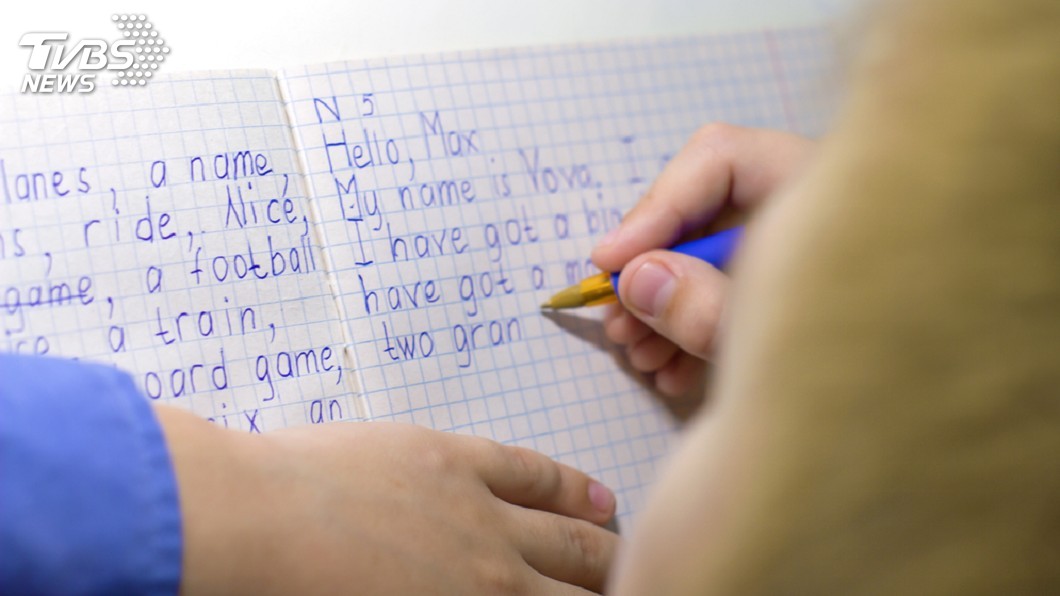 TVBS
NEWS
lanes, a name,
ride, Nice,
game, a football
a train,
board game,
an
N 5
Hello, Max
My name is Vova. I
I have got a big
have got a
two gran